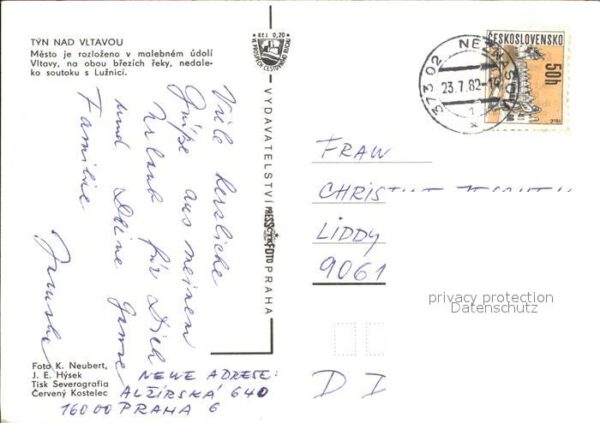 TÝN NAD VLTAVOU
Město je rozloženo v malebném údolí
Vltavy, na obou březích řeky, nedale-
ko soutoku s Lužnicí.
Viele herzliche
Grüße aus meinem
Urlaub für Dich
und Deine Ganze
Familie
Jarmila
NEWE ADRESE:
ALŽÍRSKÁ 640
16000 PRAHA 6
Foto K. Neubert,
J. E. Hýsek
Tisk Severografia
Červený Kostelec
KčS 0,20
VYDAVATELSTVÍ PRESSFOTO PRAHA
373 02
23.7.82-16
ČESKOSLOVENSKO
50h
FRAW
LIDDY
9061
D D
privacy protection
Datenschutz